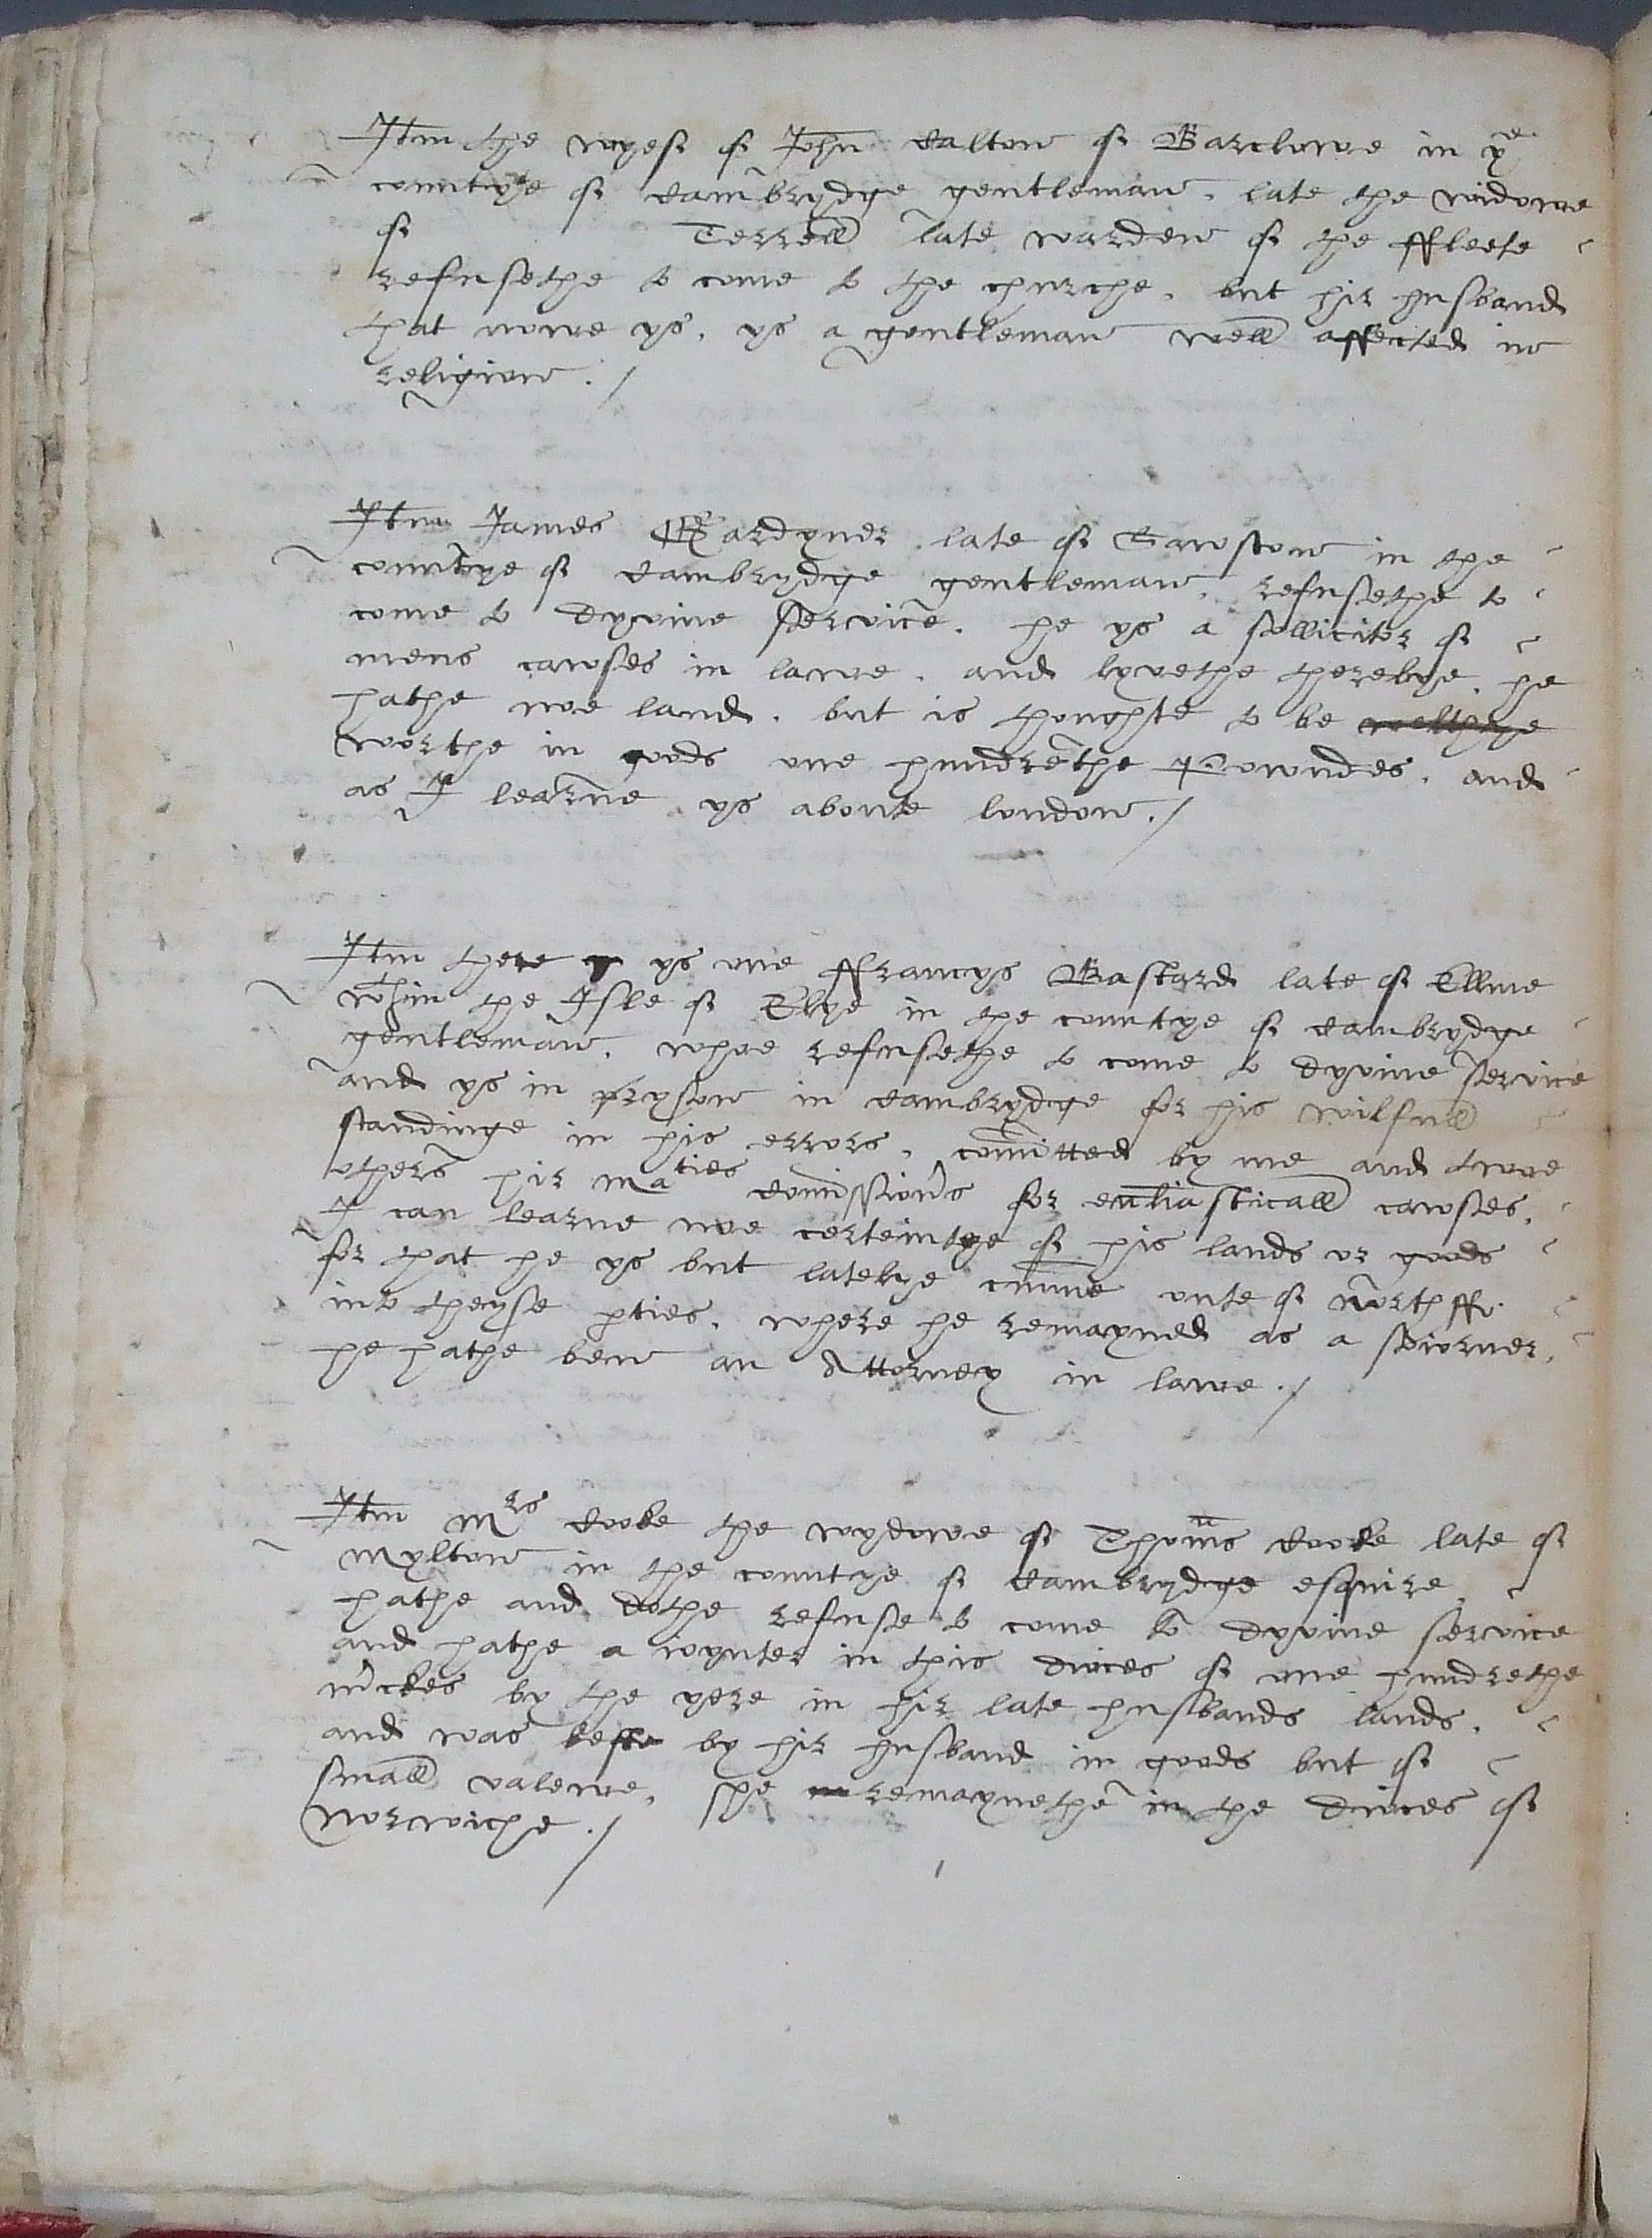 Itm the wyef of John Dalton of Barclowe in ye
countye of Cambrydge gentleman, late the widowe
of Terrell late warden of the ffleete
refusethe to come to the churche, but hir husband
that nowe ys, ys a gentleman well affected in
religion ./
Itm James Gardyner late of Sawston in the
countye of Cambrydge gentleman, refusethe to
come to dyvine service. he ys a solliciter of
mens cawses in lawe, and lyvethe therebye, he
hathe noe land, but is thoughte to be welthye
worthe in goods one hundrethe Powndes, and
as I learne ys aboute london ./
Itm there ys one ffrancys Bastard late of Ellme
wthin the Isle of Elye in the countye of Cambrydge
gentleman, whoe refusethe to come to dyvine service
and ys in pryson in Cambrydge for his wilfull
standinge in his errors, comitted by me and twoe
others hir Maties Comissions for eccliasticall cawses,
I can learne noe certeintye of his lands or goods
for that he ys but latelye cumme oute of Northff.
into theyse pties, where he remayned as a soiorner,
he hathe ben an Attorney in lawe ./
Itm Mrs Cooke the wydowe of Thomas Cooke late of
Mylton in the countye of Cambrydge esquire
hathe and dothe refuse to come to dyvine service
and hathe a ioynter in this dioces of one hundrethe
mckes by the yere in hir late husbands lands,
and was lefte by hir husband in goods but of
small valewe, she remaynethe in the dioces of
Norwiche ./